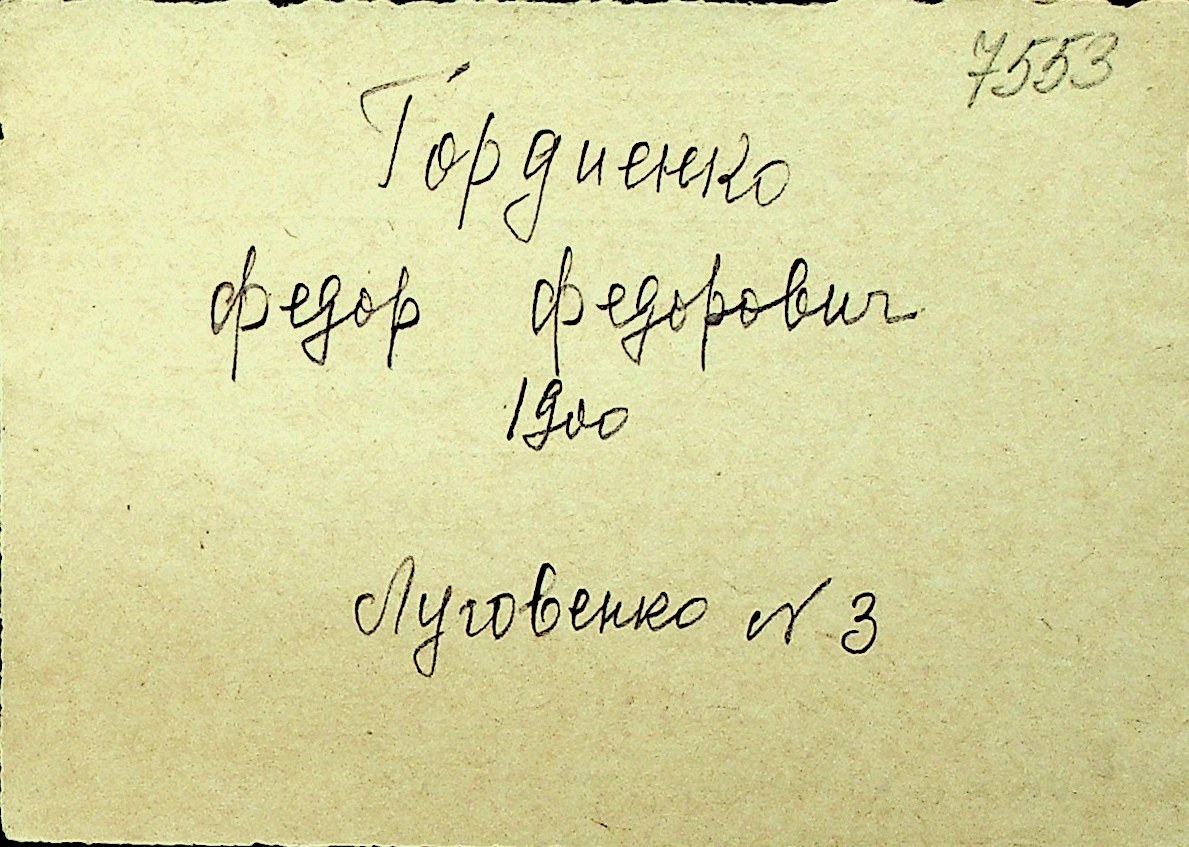 7553
Гордиенко
Федор Федорович
1900
Луговенко N 3